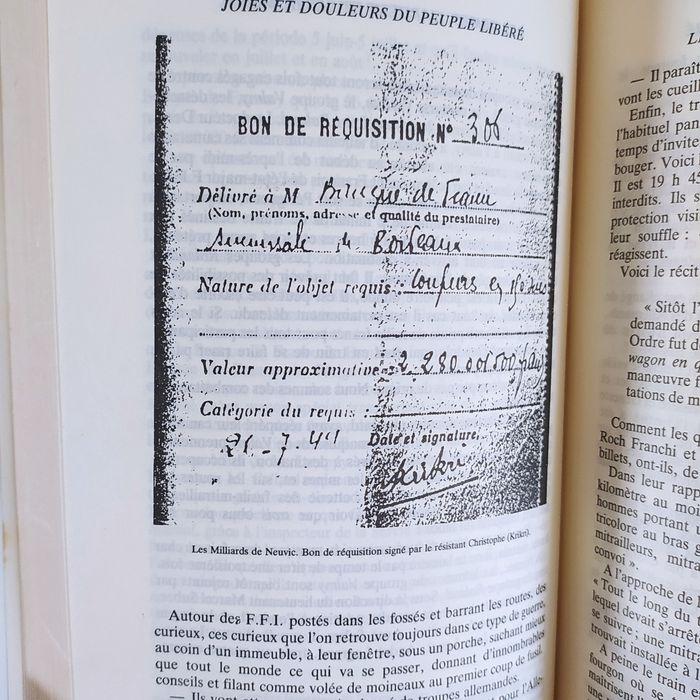 JOIES ET DOULEURS DU PEUPLE LIBÉRÉ
BON DE RÉQUISITION Nº 306
Délivré à M Banque de France
(Nom, prénoms, adresse et qualité du prestataire)
Succursale de Bordeaux
Nature de l'objet requis : Coupures en
Valeur approximative: 2.280.000.000
Catégorie du requis :
Date et signature,
Krikri
Les Milliards de Neuvic. Bon de réquisition signé par le résistant Christophe (Krikri).
Autour des F.F.I. postés dans les fossés et barrant les routes, des
curieux, ces curieux que l'on retrouve toujours dans ce type de guerre,
au coin d'un immeuble, à leur fenêtre, sous un porche, sachant mieux
que tout le monde ce qui va se passer, donnant d'innombrables
conseils et filant comme volée de moineaux au premier coup de fusil.
— Ils vont de troupes allemandes.
— Il paraît
vont les cueill
Enfin, le tr
l'habituel pan
temps d'invite
bouger. Voici
Il est 19 h 45
interdits. Ils s
protection visi
leur souffle :
réagissent.
Voici le récit
« Sitôt l'
demandé d
Ordre fut d
wagon en q
manœuvre f
tations de m
Comment les q
Roch Franchi et
billets, ont-ils, de
Dans leur rapp
kilomètre au moi
hommes portant u
tricolore au bras g
mitrailleurs, mitra
convoi ».
A l'approche de l
« Tout le long du t
lequel devait s'arrête
se suivre ; une mitra
trouvait installée à l
A peine le train
fourgon où se